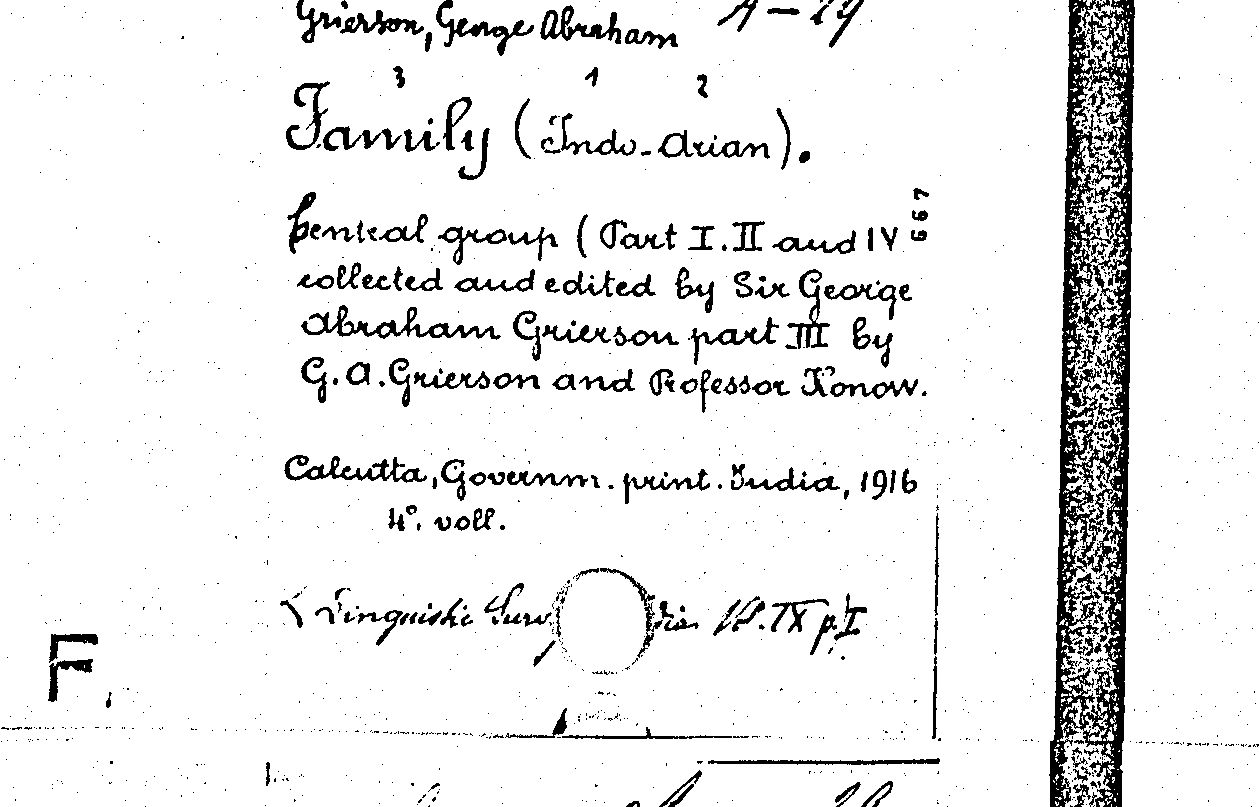 Grierson, George Abraham A - 29
3 1 2
Family (Indo-Arian).
Central group (Part I. II and IV
667
collected and edited by Sir George
Abraham Grierson part III by
G. A. Grierson and Professor Konow.
Calcutta, Governm. print. India, 1916
4°. voll.
Linguistic Surv dia. Vol. IX p. I
F.